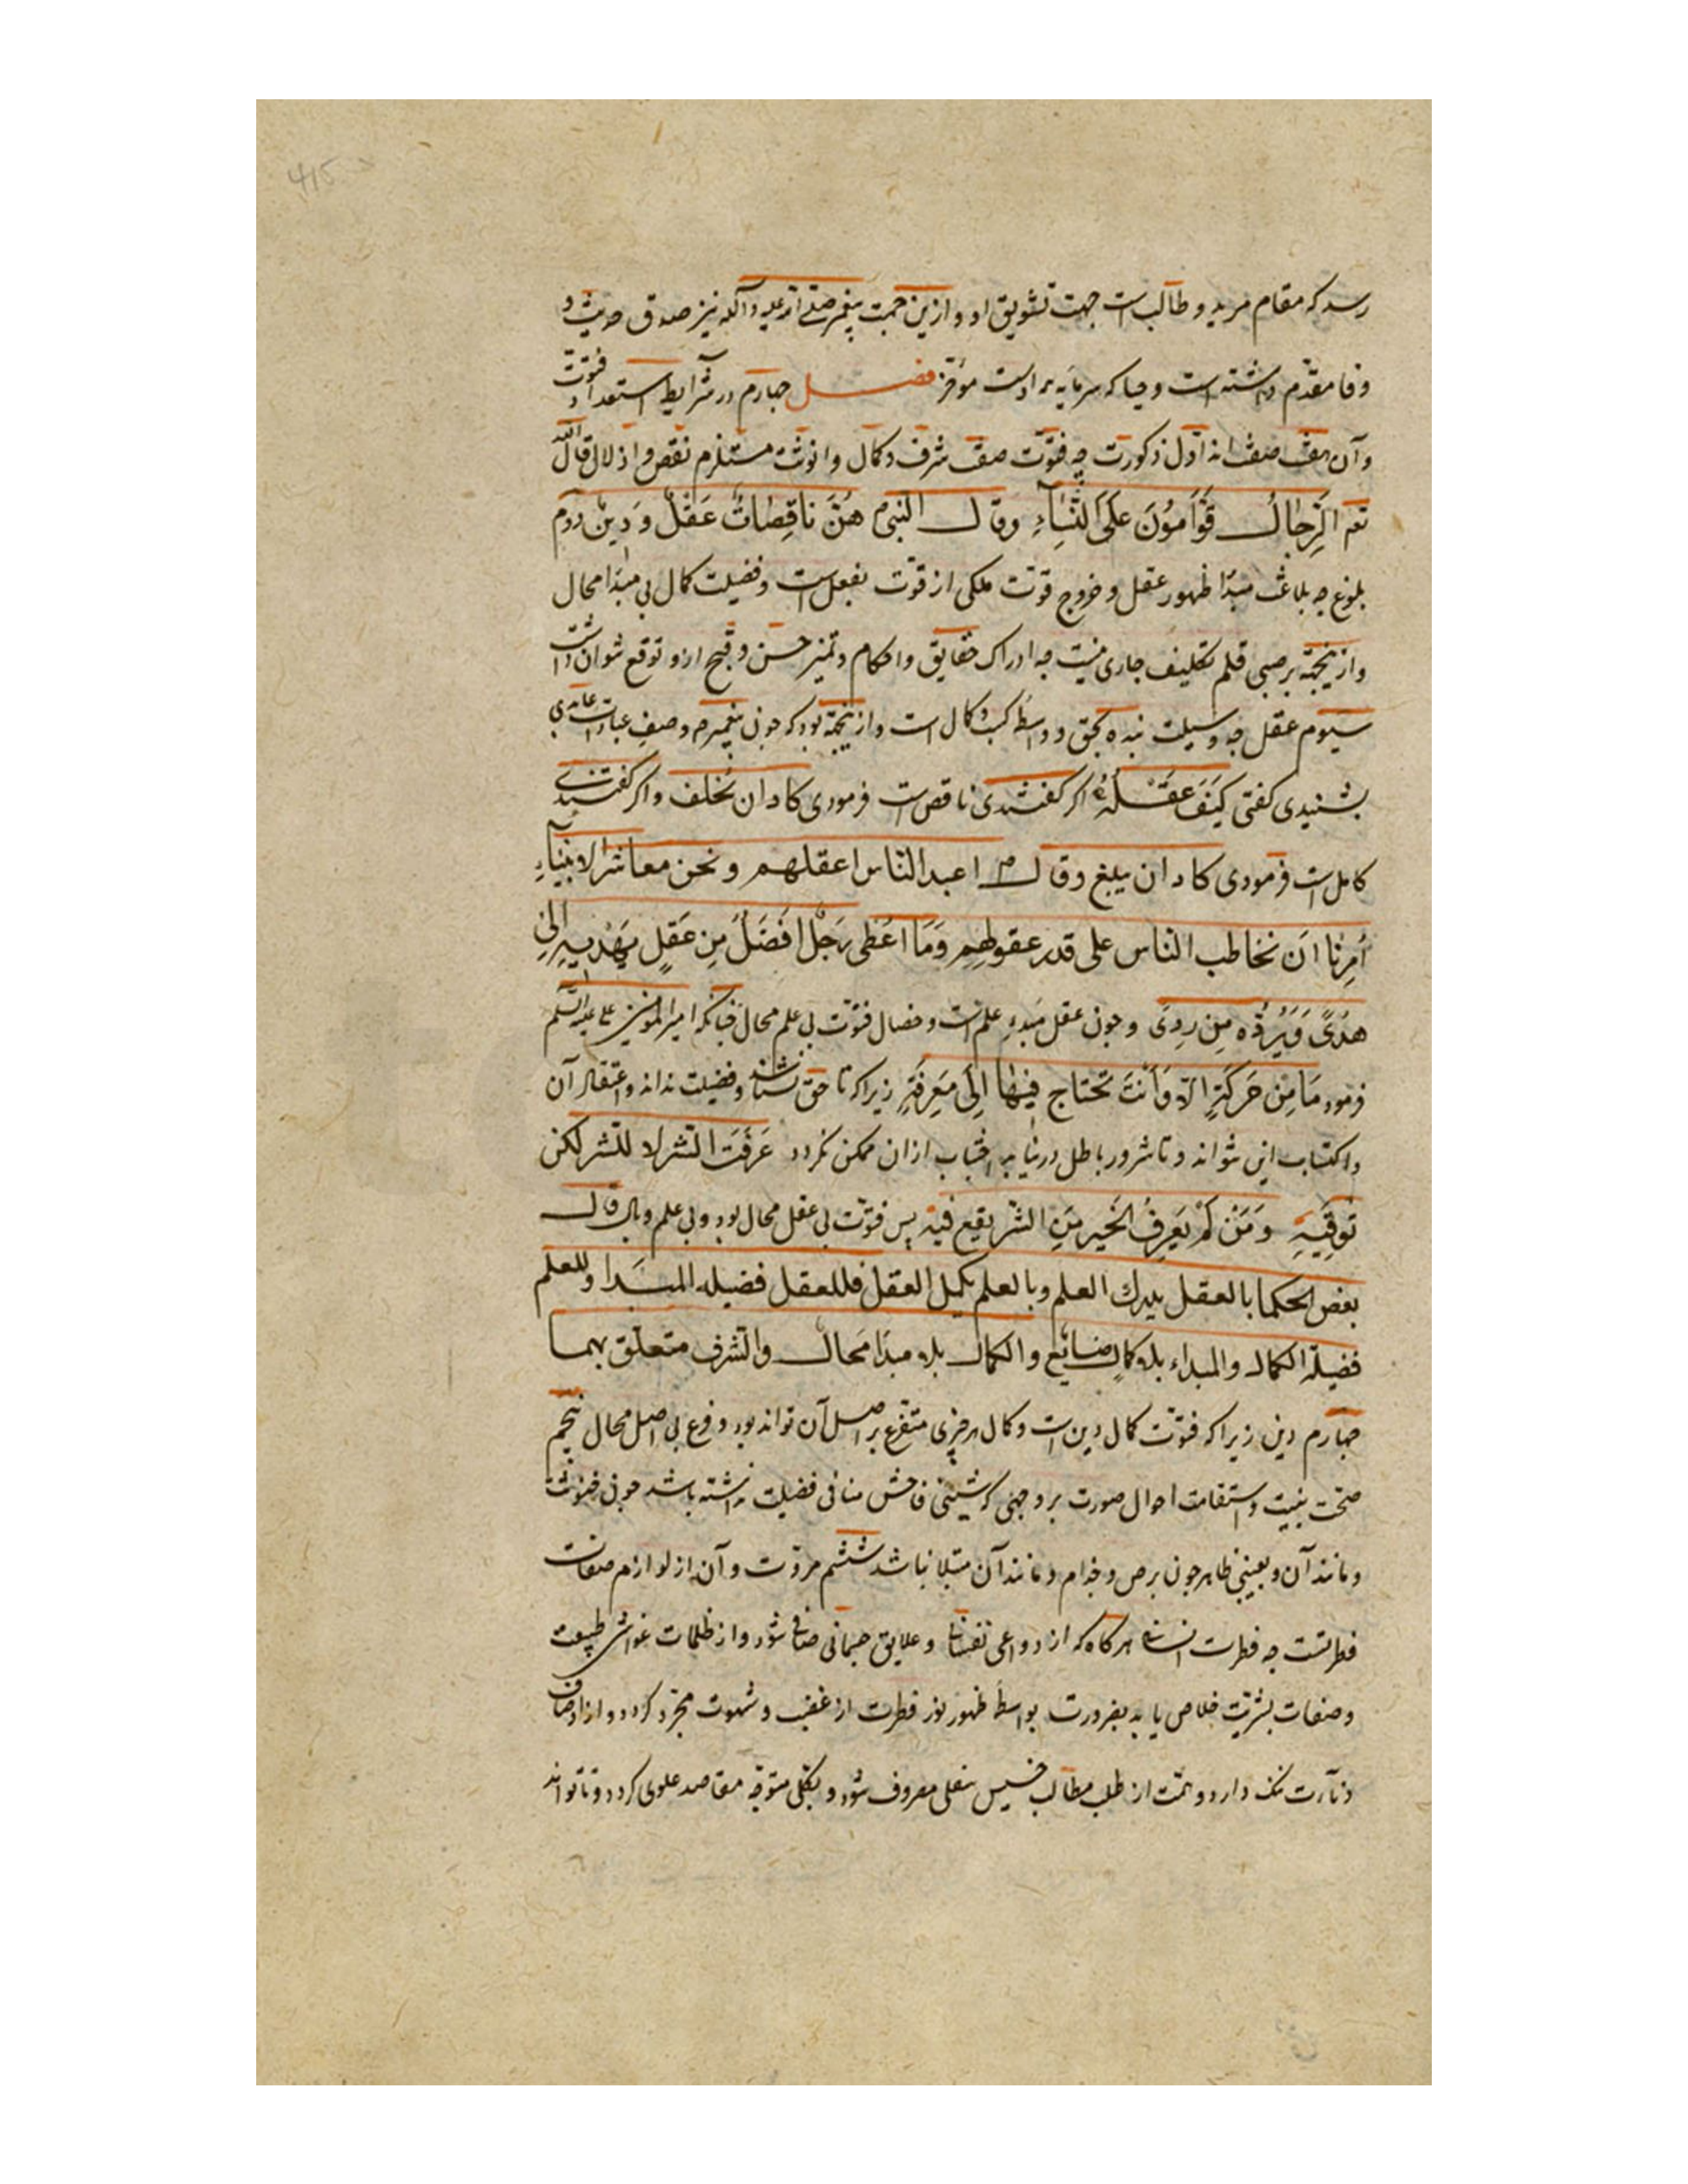 رسد که مقام مرید و طالب است جهت تشویق او و ازین جهت پیغمبر صلی الله علیه و آله نیز صدق حدیث و
وفا مقدم داشته است و حیا که سرمایه مرادست مؤخر فصل چهارم در شرایط استعداد فتوت
و آن هفت صفت‌اند اول ذکورت چه فتوت صفت شرف و کمال و انوثت مستلزم نقص و اذلال قال الله
تعم الرِّجالُ قَوَّامُونَ عَلَى النِّسَاءِ وقال النبی م هُنَّ نَاقِصَاتُ عَقْلٍ وَدِينٍ دوم
بلوغ چه بلاغت مبدا ظهور عقل و خروج قوت ملکی از قوت بفعل است و فضیلت کمال بی مبدا محال
و ازینجهة بر صبی قلم تکلیف جاری نیست چه ادراک حقایق و احکام و تمیز حسن و قبیح ازو توقع نتوان داشت
سیوم عقل چه وسیلت بنده بحق و واسطه کسب کمال است و ازینجهة بود که چون پیغمبر م وصف عبادت عابدی
بشنیدی گفتی كَيْفَ عَقْلُهُ اگر گفتندی ناقص است فرمودی کاد ان یخلف و اگر گفتندی
کامل است فرمودی کاد ان یبلغ وقال م اعبد الناس اعقلهم و نحن معاشر الانبیاءِ
أُمِرنا ان نخاطب الناس علی قدر عقولهم وَمَا اُعْطِیَ رَجُلٌ اَفْضَلَ مِن عَقلٍ یَهْدِیهِ اِلی
هُدًی وَ یَرُدُّه مِن رِدیً و چون عقل مبدء علم است و خصال فتوت بی علم محال چنانکه امیر المؤمنین علی علیه السلم
فرمود مَا مِن حَرَکَةٍ اِلّا وَ اَنْتَ تحتاج فیها اِلَی مَعرِفَةٍ زیرا که تا حق نشناسد و فضیلت نداند و اعتقاد آن
و اکتساب این نتواند و تا شرور باطل درنیابد اجتناب ازان ممکن نگردد عَرَفتَ الشر لا للشر لکن
تَوقّیهِ وَ مَنْ لَمْ یَعرِفُ الخَیر مِنَ الشر یقع فیه پس فتوت بی عقل محال بود و بی علم وبال قال
بعض الحکما بالعقل یدرک العلم و بالعلم یکمل العقل فللعقل فضیله المبدا و للعلم
فضیلة الکمال والمبداء بلا کمال ضایع والکمال بلا مبدا محال والشرف متعلق بهما
چهارم دین زیرا که فتوت کمال دین است و کمال هر چیزی متفرع بر اصل آن تواند بود و فرع بی اصل محال پنجم
صحت بنیت و استقامت احوال صورت بر وجهی که شینی فاحش منافی فضیلت نداشته باشد چون خنوثت
و مانند آن و بعیبی ظاهر چون برص و جذام و مانند آن مبتلا نباشد ششم مروت و آن از لوازم صفات
فطرتست چه فطرت انسانی هرگاه که از دواعی نفسانی و علایق جسمانی صافی شود و از ظلمات غواشی طبیعت
و صفات بشریت خلاص یابد بضرورت بواسطه ظهور نور فطرت از غضب و شهوت مجرد گردد و از اوصاف
دنآءت ننگ دارد و همت از طلب مطالب خسیس سفلی مصروف شود و بکلی متوجه مقاصد علوی گردد و تا تواند